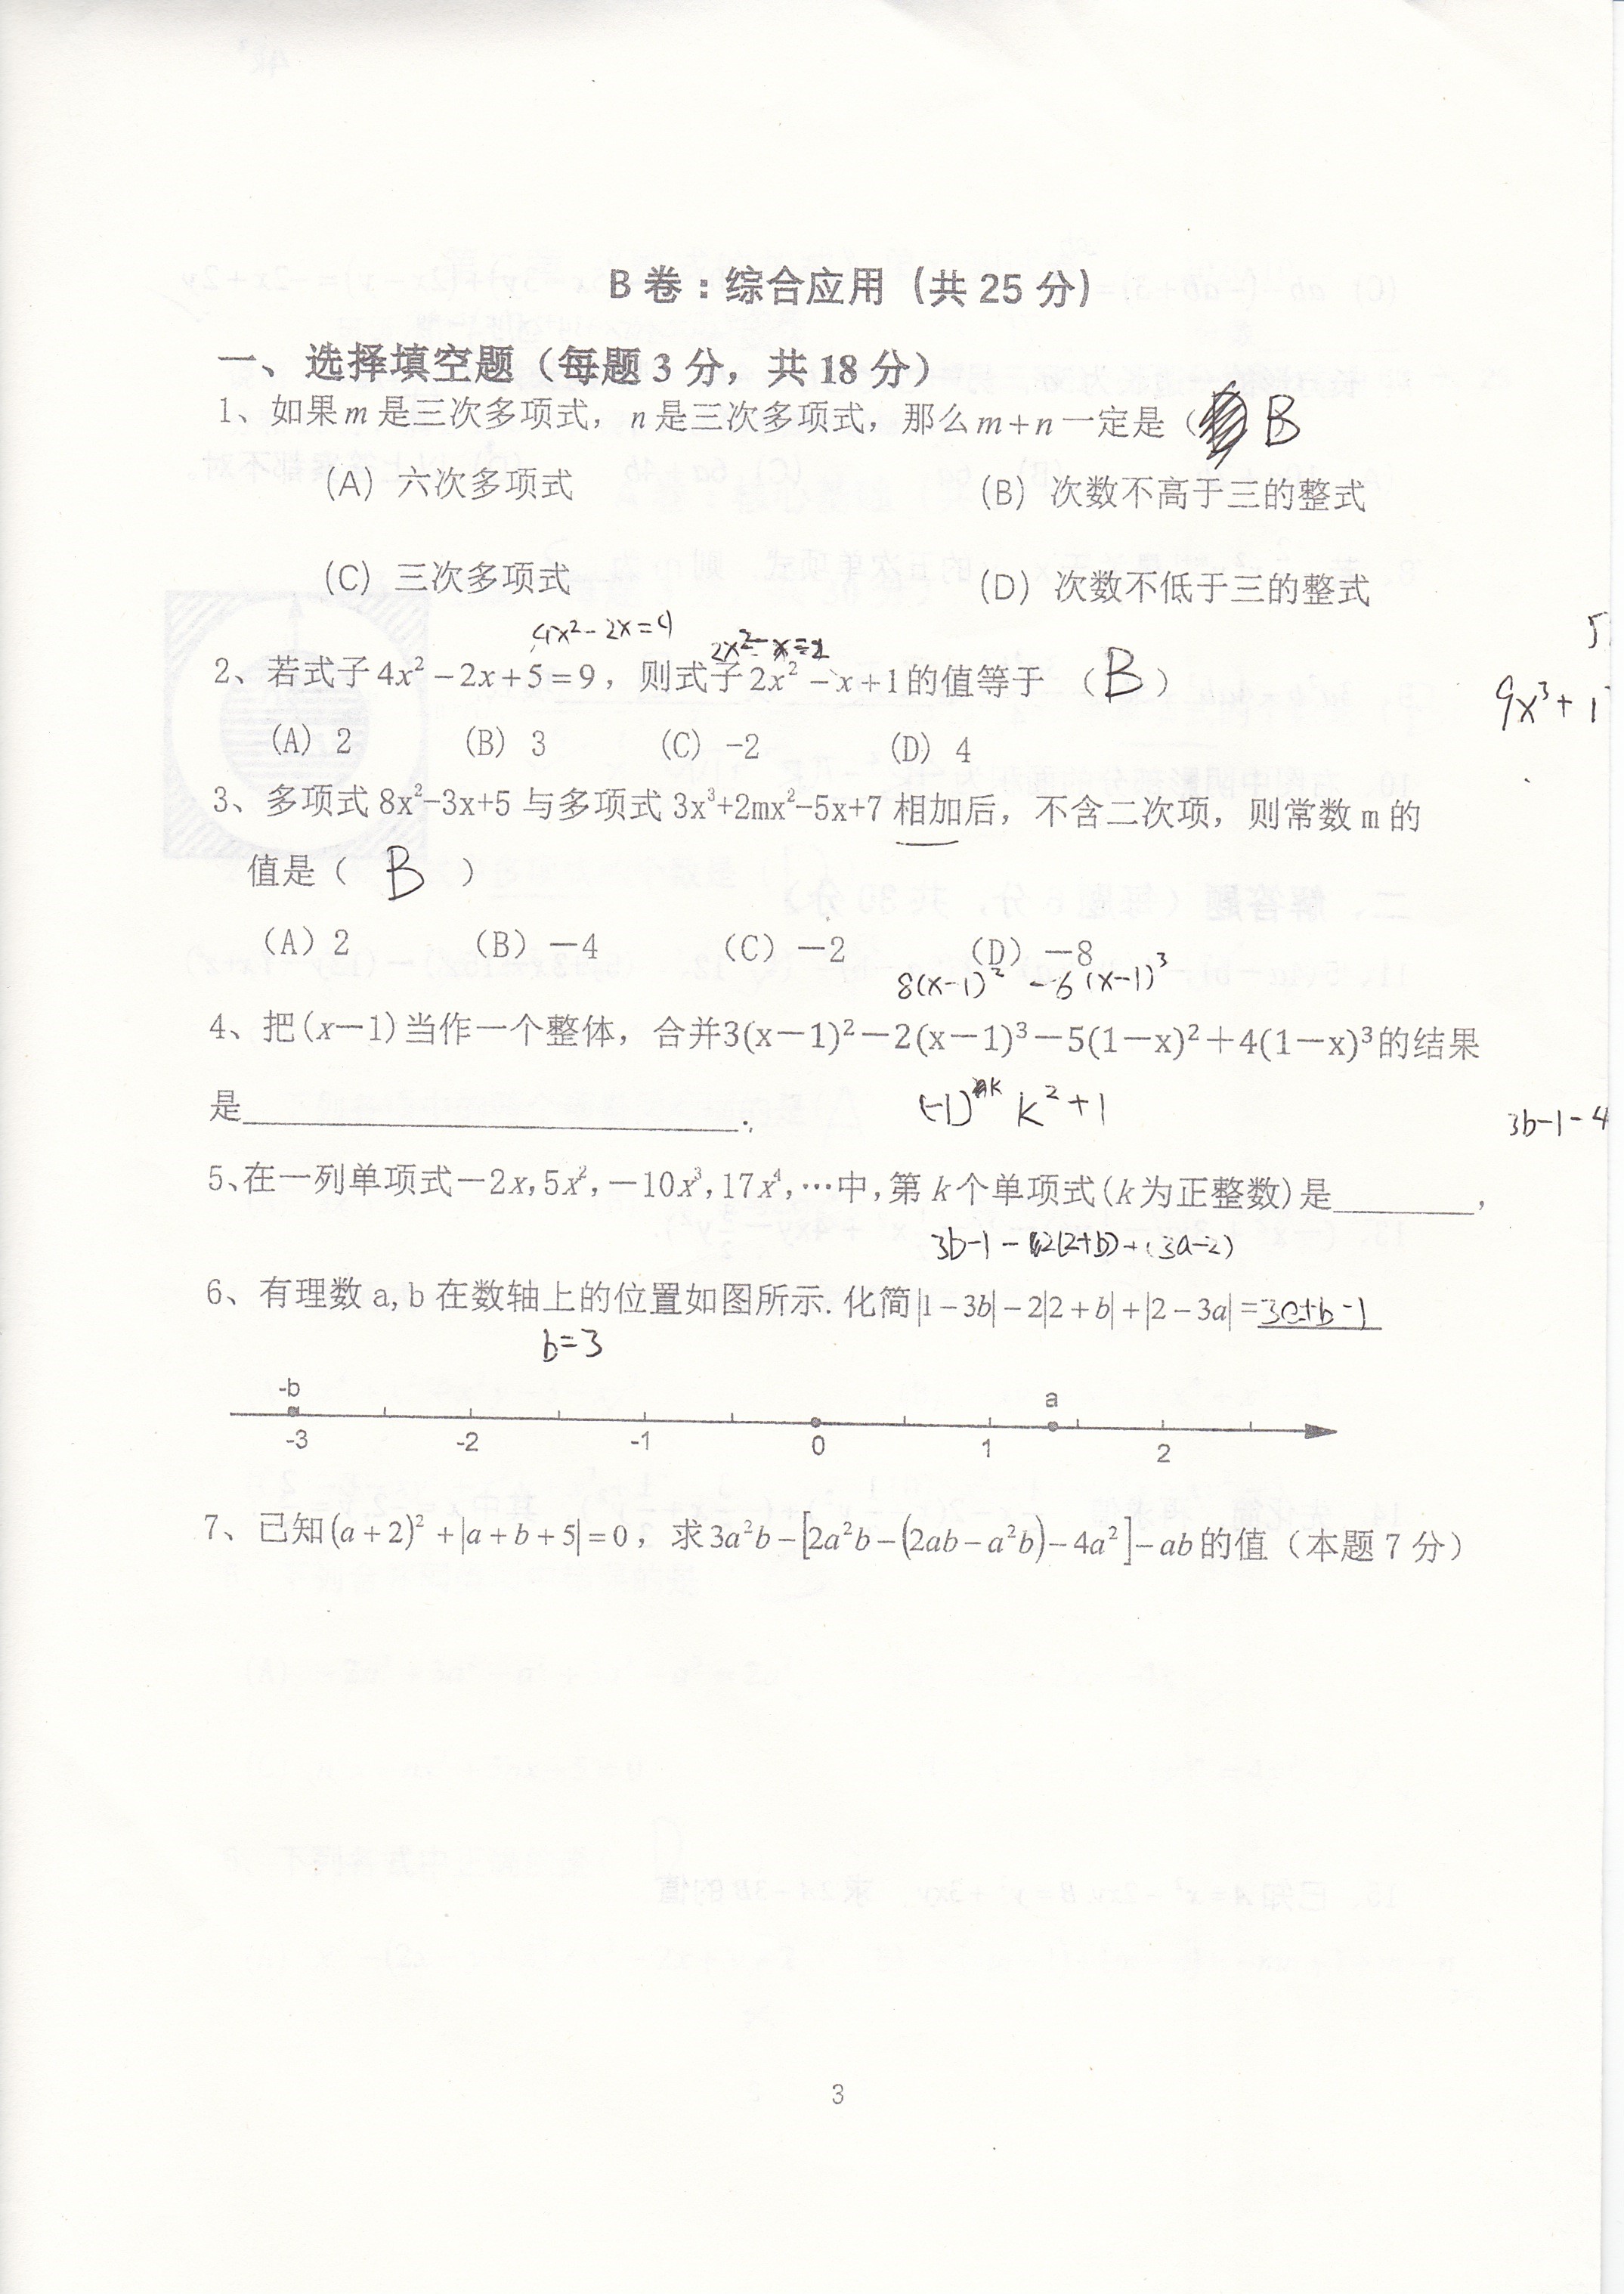 B 卷：综合应用（共 25 分）
一、选择填空题（每题 3 分，共 18 分）
1、如果 m 是三次多项式，n 是三次多项式，那么 m+n 一定是（ B
（A）六次多项式 （B）次数不高于三的整式
（C）三次多项式 （D）次数不低于三的整式
4x²-2x=4 2x²-x=2
2、若式子 4x²－2x+5=9，则式子 2x²－x+1 的值等于 （ B ）
（A）2 （B）3 （C）-2 （D）4
9x³+1
3、多项式 8x²-3x+5 与多项式 3x³+2mx²-5x+7 相加后，不含二次项，则常数 m 的
值是（ B ）
（A）2 （B）－4 （C）－2 （D）－8
8(x-1)² -6(x-1)³
4、把(x－1)当作一个整体，合并3(x－1)²－2(x－1)³－5(1－x)²＋4(1－x)³的结果
是________.
(-1)ᵏ k²+1
3b-1-4
5、在一列单项式－2x, 5x², －10x³, 17x⁴, …中, 第 k 个单项式(k 为正整数)是________，
3b-1-2(2+b)+(3a-2)
6、有理数 a, b 在数轴上的位置如图所示. 化简|1－3b|－2|2＋b|＋|2－3a|=3a+b-1
b=3
-b a
-3 -2 -1 0 1 2
7、已知(a+2)²+|a+b+5|=0，求3a²b－[2a²b－(2ab－a²b)－4a²]－ab的值（本题 7 分）
3